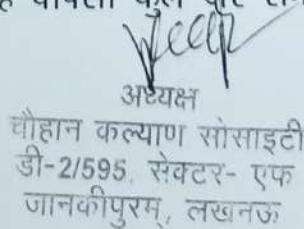 अध्यक्ष
चौहान कल्याण सोसाइटी
डी-2/595, सेक्टर- एफ
जानकीपुरम्, लखनऊ